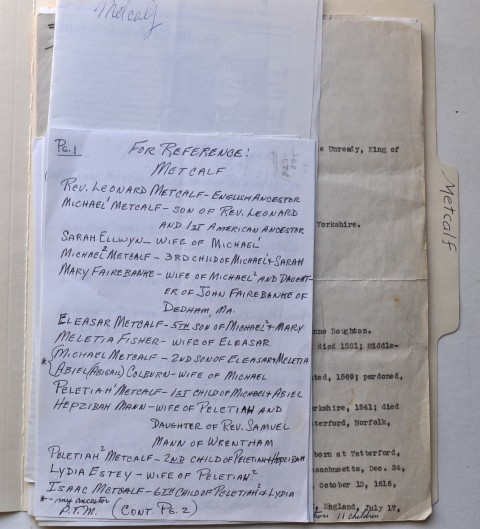 Metcalf
Pg. 1
FOR REFERENCE:
METCALF
REV. LEONARD METCALF - ENGLISH ANCESTOR
MICHAEL¹ METCALF - SON OF REV. LEONARD
AND 1ST AMERICAN ANCESTOR
SARAH ELLWYN - WIFE OF MICHAEL¹
MICHAEL² METCALF - 3RD CHILD OF MICHAEL¹ & SARAH
MARY FAIREBANKE - WIFE OF MICHAEL² AND DAUGHT-
ER OF JOHN FAIREBANKE OF
DEDHAM, MA.
ELEASAR METCALF - 5TH SON OF MICHAEL² & MARY
MELETIA FISHER - WIFE OF ELEASAR
* MICHAEL METCALF - 2ND SON OF ELEASAR & MELETIA
ABIEL (ABIGAIL) COLBURN - WIFE OF MICHAEL
PELETIAH¹ METCALF - 1ST CHILD OF MICHAEL & ABIEL
HEPZIBAH MANN - WIFE OF PELETIAH AND
DAUGHTER OF REV. SAMUEL
MANN OF WRENTHAM
PELETIAH² METCALF - 2ND CHILD OF PELETIAH & HEPZIBAH
LYDIA ESTEY - WIFE OF PELETIAH²
ISAAC METCALF - 6TH CHILD OF PELETIAH² & LYDIA
* - my ancestor
P.T.M. (CONT PG. 2)
Unready, King of
Yorkshire.
Boughton.
died 1501; Middle-
1569; pardoned,
1541; died
Norfolk,
born at Tatterford,
Dec. 24,
October 13, 1616,
England, July 17,
11 children
Metcalf